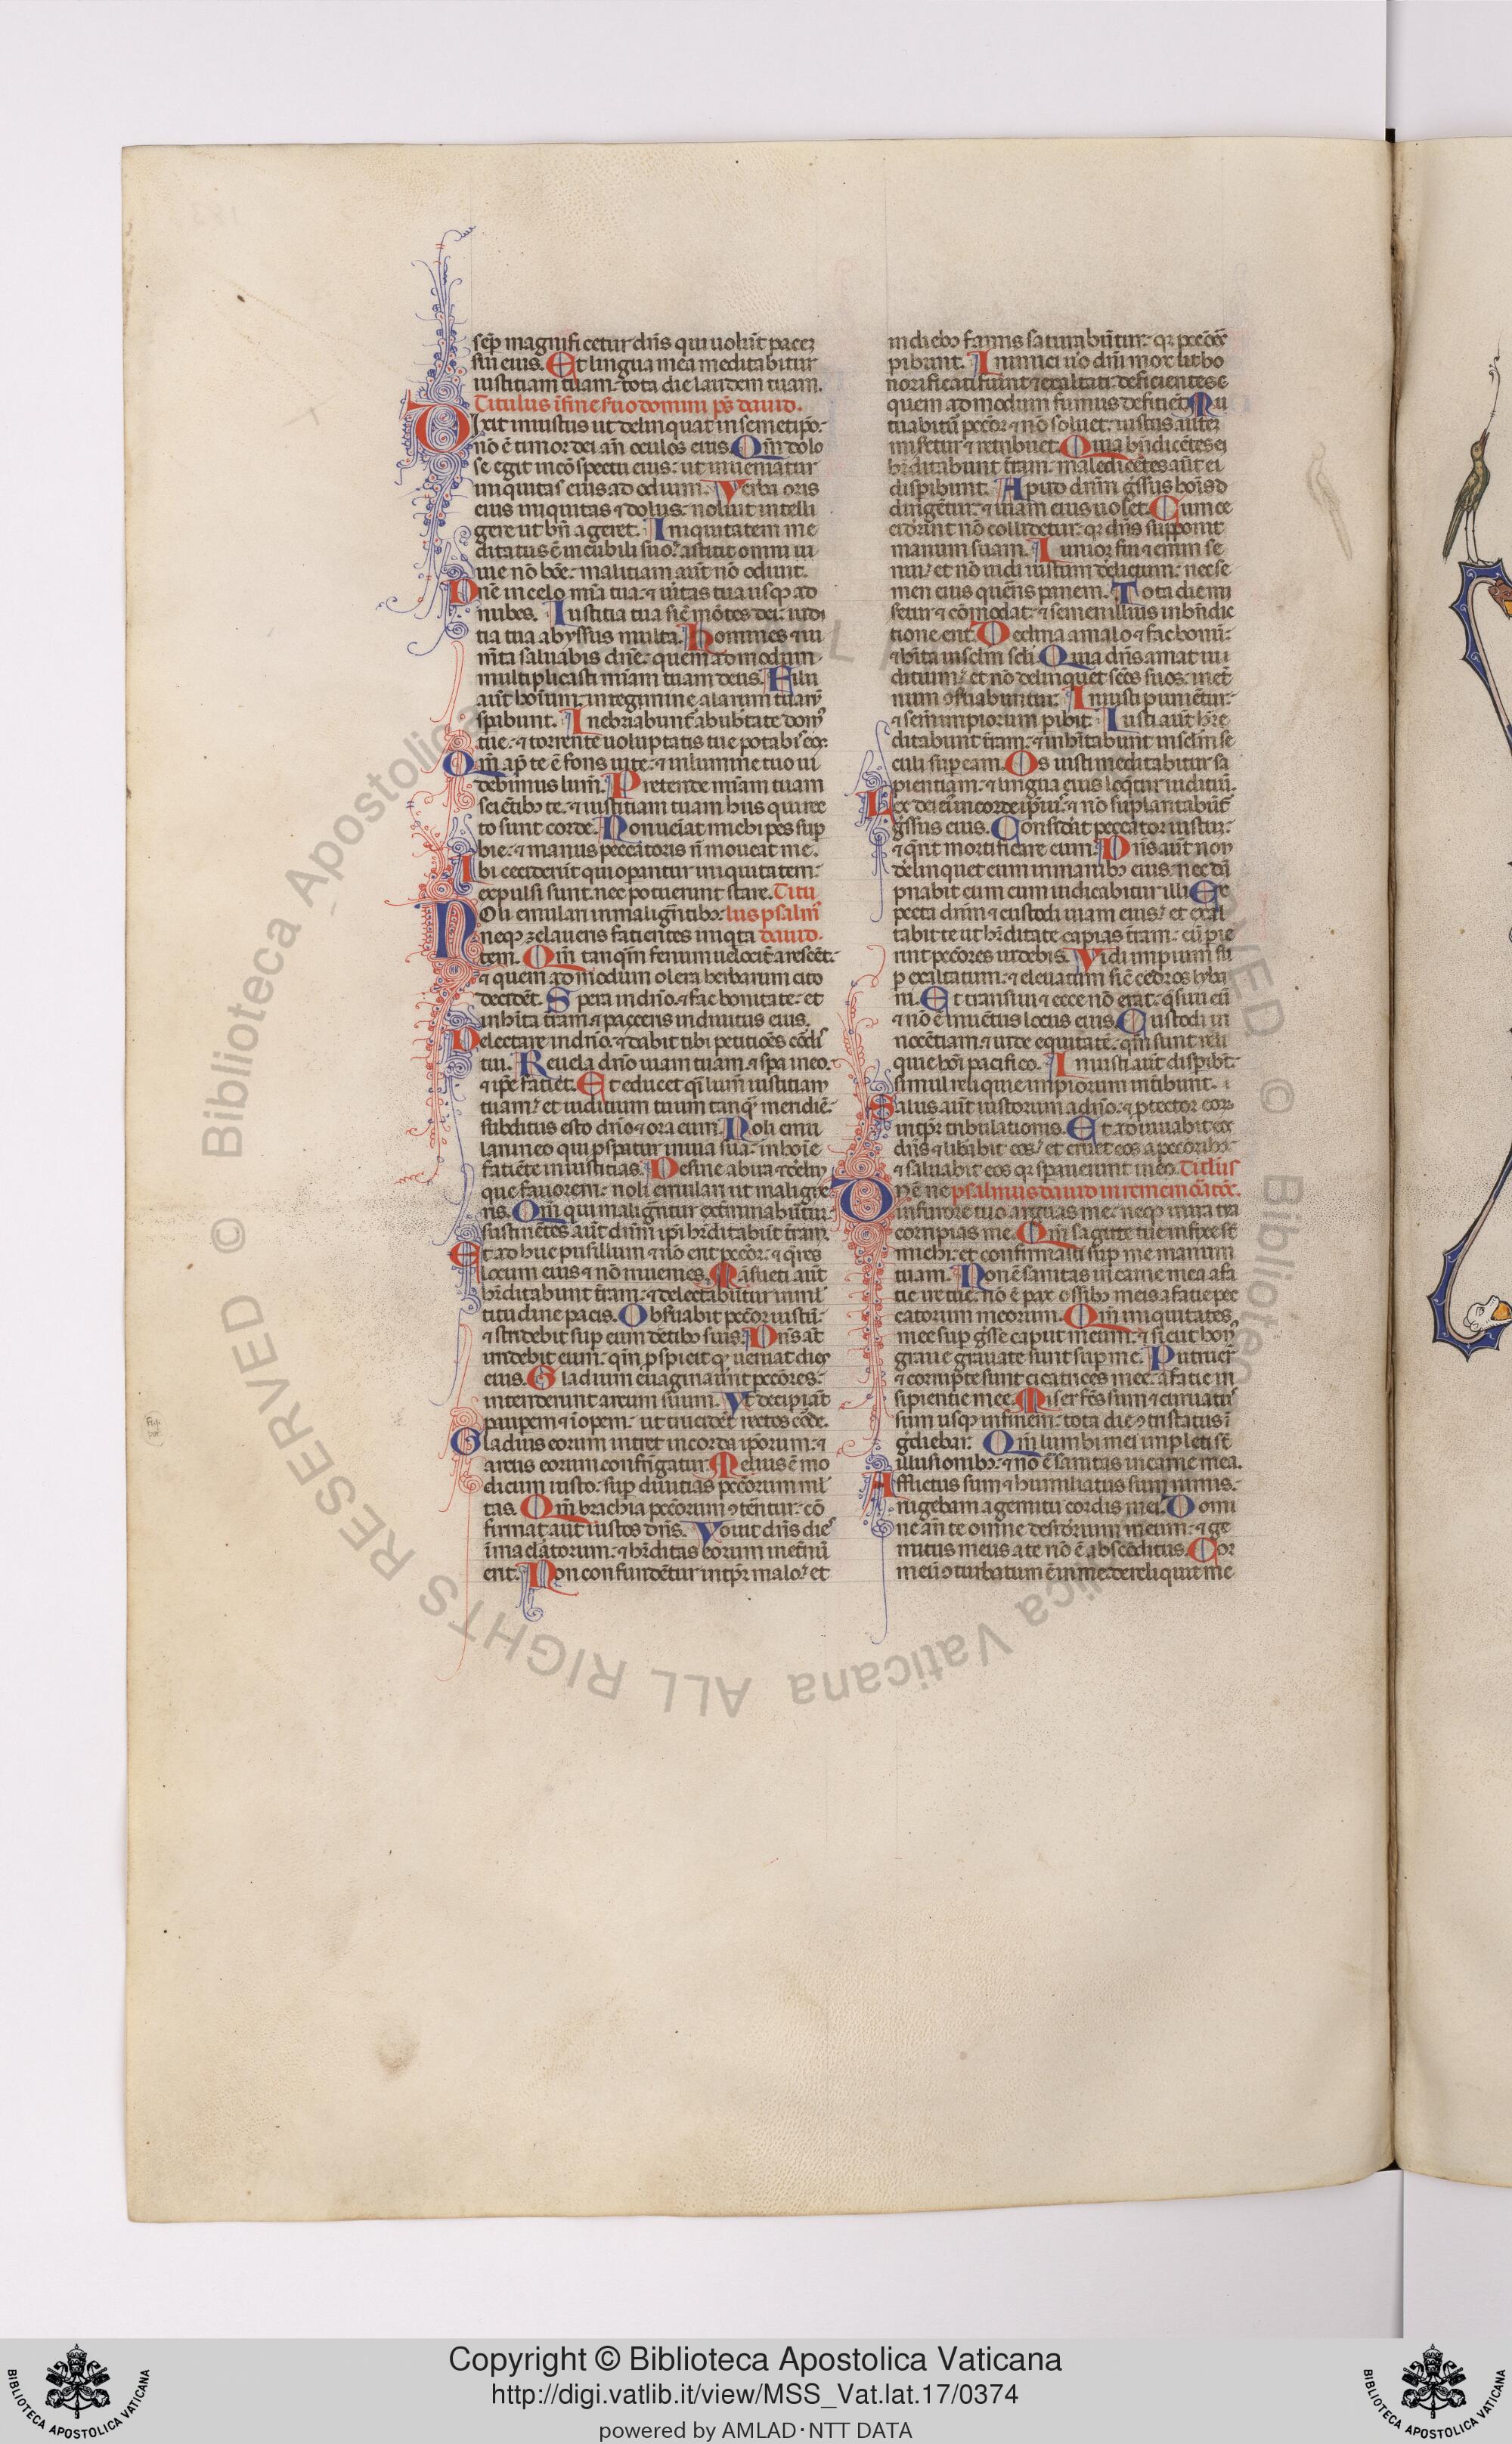 semp̄ magnificetur dn̄s qui uolūt pacez
sūi eius. Et lingua mea meditabitur
iustitiam tuam: tota die laudem tuam.
Titulus ī fine s̄uo domini ps̄ dauid.
Dixit iniustus ut delinquat in semetip̄o:
nō ē timor dei an̄ oculos eius. Qm̄ dolo
se egit in cōspectu eius: ut inueniatur
iniquitas eius ad odium. Verba oris
eius iniquitas ⁊ dolus: noluit intelli
gere ut bn̄ ageret. Iniquitatem me
ditatus ē in cubili suo: astitit omni ui
uie nō bōe: malitiam aūt nō odiuit.
Dn̄e in celo mīa tua: ⁊ ūitas tua usq̨ ad
nubes. Iustitia tua sic̄ mōtes dei: iudi
tia tua abyssus multa. Homines ⁊ iu
mīta saluabis dn̄e: quem ad modum
multiplicasti mīam tuam deus. Filii
aūt hoīum: in tegmine alarum tuar̄
sp̄abunt. Inebriabunt̄ ab ub̄tate dom̄
tue: ⁊ torrente uoluptatis tue potabis eos.
Qm̄ ap̄ te ē fons uite: ⁊ in lumine tuo ui
debimus lum̄. Pretende mīam tuam
sciētibȝ te: ⁊ iustitiam tuam hiis qui rec
to sunt corde. Non ueīat michi pes sup̄
bie: ⁊ manus peccatoris n̄ moueat me.
Ibi ceciderūt qui op̄antur iniquitatem:
expulsi sunt nec potuerunt stare. Titu
Noli emulari in malign̄tibȝ: lus psalm̄
neq̨ zelaueris fatientes iniq̄ta dauid.
tem. Qm̄ tanq̄m fenum uelocit̄ arescēt:
⁊ quem ad modum olera herbarum cito
decidēt. Spera in dn̄o ⁊ fac bonitatē: et
inhīta t̄ram ⁊ pasceris in diuitiis eius.
Delectare in dn̄o: ⁊ dabit tibi petitiōes cōdis
tui. Reuela dn̄o uiam tuam: ⁊ sp̄a in eo:
⁊ ip̄e fatiet. Et educet q̄i lum̄ iustitiam
tuam: et iuditium tuum tanq̄ meridiē:
subditus esto dn̄o ⁊ ora eum. Noli emu
lari in eo qui p̄sp̄atur in uia sua: in hoīe
fatiēte iniustitias. Desine ab ira ⁊ dēlin
que fauorem: noli emulari ut maligne
ris. Qm̄ qui malign̄tur ext̄minabūtur:
sustinētes aūt dn̄m ip̄i h̄editabūt t̄ram.
Et ad huc pusillum ⁊ nō erit pec̄cor: ⁊ q̄res
locum eius ⁊ nō inuenies. Māsueti aūt
h̄editabunt t̄ram: ⁊ delectabūtur in ml̄
titudine pacis. Obs̄uabit pec̄cor iustū:
⁊ stridebit sup̄ eum dētibȝ suis. Dn̄s aūt
irridebit eum: qm̄ p̄spicit q̨ ueniat dies
eius. Gladium euaginauūt pec̄cores:
intenderunt arcum suum. Vt decipiāt
paup̄em ⁊ īopem: ut trucidēt rectos cōde.
Gladius eorum intret in corda ip̄orum: ⁊
arcus eorum confrīgatur. Melius ē mo
dicum iusto: sup̄ diuitias pec̄corum ml̄
tas. Qm̄ brachia pec̄corum ꝯtēntur: cō
firmat aūt iustos dn̄s. Nouit dn̄s dies
īmaclatorum: ⁊ h̄editas eorum in et̄nū
erit. Non confundētur in tp̄r malo: et
in diebȝ famis saturabūtur: qr pec̄cores
pibunt. Inimici ūo dn̄i mox ut ho
norificati fuint ⁊ exaltati: deficientes
quem ad modum fumus defitiēt. Mu
tuabitū pec̄cor ⁊ nō soluet: iustus autez
misetur ⁊ retribuet. Quia bn̄dicētes ei
h̄editabunt t̄ram: maledicētes aūt ei
disp̄ibunt. Apud dn̄m ḡssus hoīs d
dirigētur: ⁊ uiam eius uolet. Cum ce
ciderint nō collidetur: qr dn̄s supponit
manum suam. Iunior fui ⁊ enim se
nui: et nō uidi iustum delictum: nec se
men eius querēs panem. Tota die mi
setur ⁊ cōmodat: ⁊ semen illius in bn̄dic
tione erit. Declina a malo ⁊ fac bonū:
⁊ hīta in sclm̄ scli. Quia dn̄s amat iu
ditium: et nō delinquet scōs suos: in et̄
num ꝯs̄uabuntur. Iniusti punientur:
⁊ sem̄ impiorum p̄ibit. Iusti aūt h̄re
ditabunt t̄ram: ⁊ inhītabunt in sclm̄ se
culi sup̄ eam. Os iusti meditabitur sa
pientiam: ⁊ lingua eius loq̄tur iuditiū.
Lex dei eī in corde ip̄ius: ⁊ nō suplantabūt̄
ḡssus eius. Considat peccator iustuz:
⁊ q̄rit mortificare eum. Dn̄s aūt non
delinquet eum in manibȝ eius: nec dā
pnabit eum cum iudicabitur illi. Ex
pecta dn̄m ⁊ custodi uiam eius: et exal
tabit te ut h̄editate capias t̄ram: cū pie
rint pec̄cores uidebis. Vidi impium su
p exaltatum: ⁊ eleuatum sic̄ cedros lyba
ni. Et transiui ⁊ ecce nō erat: q̄siui eū
⁊ nō ē inuētus locus eius. Custodi in
nocētiam: ⁊ uide equitatē: qm̄ sunt reli
quie hoī pacifico. Iniusti aūt disp̄ibt̄:
simul reliquie impiorum int̄ibunt.
Salus aūt iustorum a dn̄o: ⁊ p̄tector eorȝ
in tp̄r tribulationis. Et adiuuabit eos
dn̄s ⁊ lib̄abit eos: et eruet eos a pec̄coribȝ:
⁊ saluabit eos qr sp̄auerunt in eo. Titulus
Dn̄e ne psalmus dauid in rememōatōe.
in furore tuo arguas me: neq̨ in ira tua
corripias me. Qm̄ sagitte tue infixe st̄
michi: et confirmasti sup̄ me manum
tuam. Non ē sanitas in carne mea a fa
tie ire tue: nō ē pax ossibȝ meis a fatie pec
catorum meorum. Qm̄ iniquitates
mee sup̄ ḡsse caput meum: ⁊ sicut hon̄
graue grauate sunt sup̄ me. Putruer̄
⁊ corrupte sunt cicatrices mee: a fatie in
sipientie mee. Miser fc̄s sum ⁊ curuatus
sum usq̨ in finem: tota die ꝯtristatus ī
ḡdiebar. Qm̄ lumbi mei impleti st̄
illusionibȝ: ⁊ nō ē sanitas in carne mea.
Afflictus sum ⁊ humiliatus sum nimis:
rugiebam a gemitu cordis mei. Domi
ne an̄ te omne desid̄erium meum: ⁊ ge
mitus meus a te nō ē abscōditus. Cor
meū ꝯturbatum ē in me: dereliquit me
Copyright © Biblioteca Apostolica Vaticana
http://digi.vatlib.it/view/MSS_Vat.lat.17/0374
powered by AMLAD·NTT DATA
BIBLIOTECA APOSTOLICA VATICANA
BIBLIOTECA APOSTOLICA VATICANA
© Biblioteca Apostolica Vaticana ALL RIGHTS RESERVED